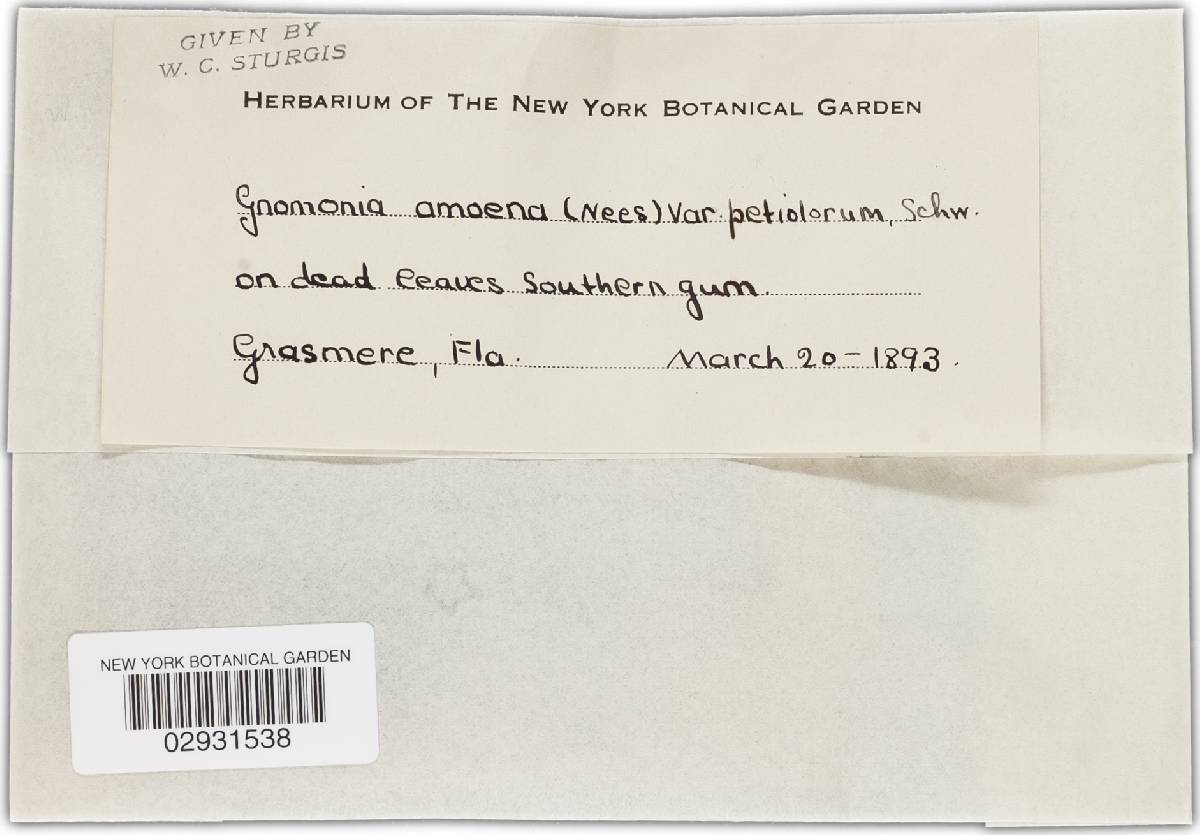 GIVEN BY
W. C. STURGIS
HERBARIUM OF THE NEW YORK BOTANICAL GARDEN
Gnomonia amoena (Nees) Var. petiolorum, Schw.
on dead leaves Southern gum
Grasmere, Fla. March 20 - 1893.
NEW YORK BOTANICAL GARDEN
02931538